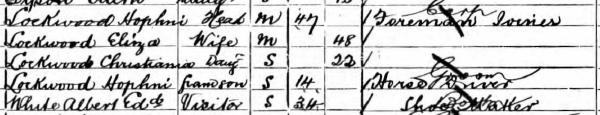 Lockwood Hophni Head M 47 Foreman Joiner
Lockwood Eliza Wife M 48
Lockwood Christiania Daug S 22
Lockwood Hophni Grandson S 14 Horse Driver
White Albert Edd Visitor S 34